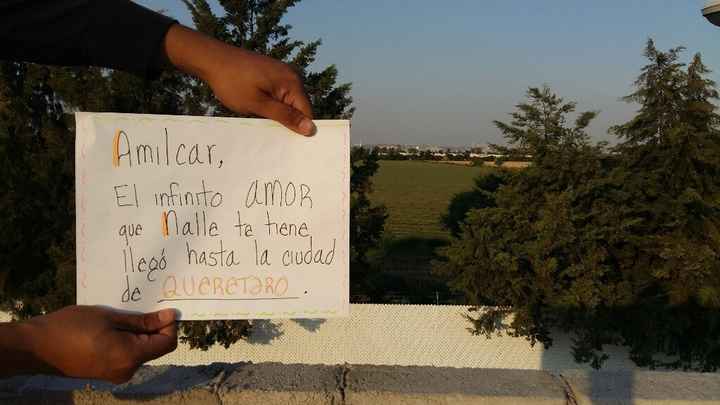 Amilcar,
El infinito AMOR
que Nalle te tiene
llegó hasta la ciudad
de QUERETARO.